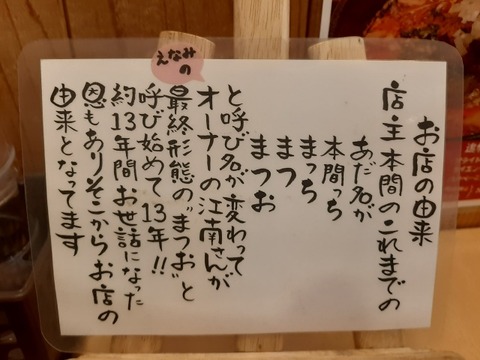 お店の由来
店主本間のこれまでの
あだ名が
本間っち
まっち
まつ
まつお
と呼び名が変わって
オーナーの江南さんが
えなみの
最終形態の〝まつお〟と
呼び始めて13年!!
約13年間お世話になった
恩もありそこからお店の
由来となってます